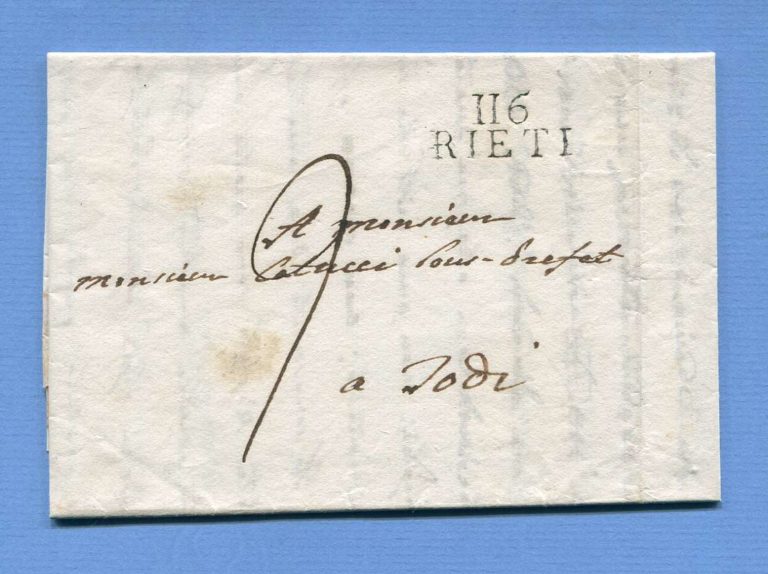 116
RIETI
A monsieur
monsieur Catucci Sous-Prefet
a Todi
9